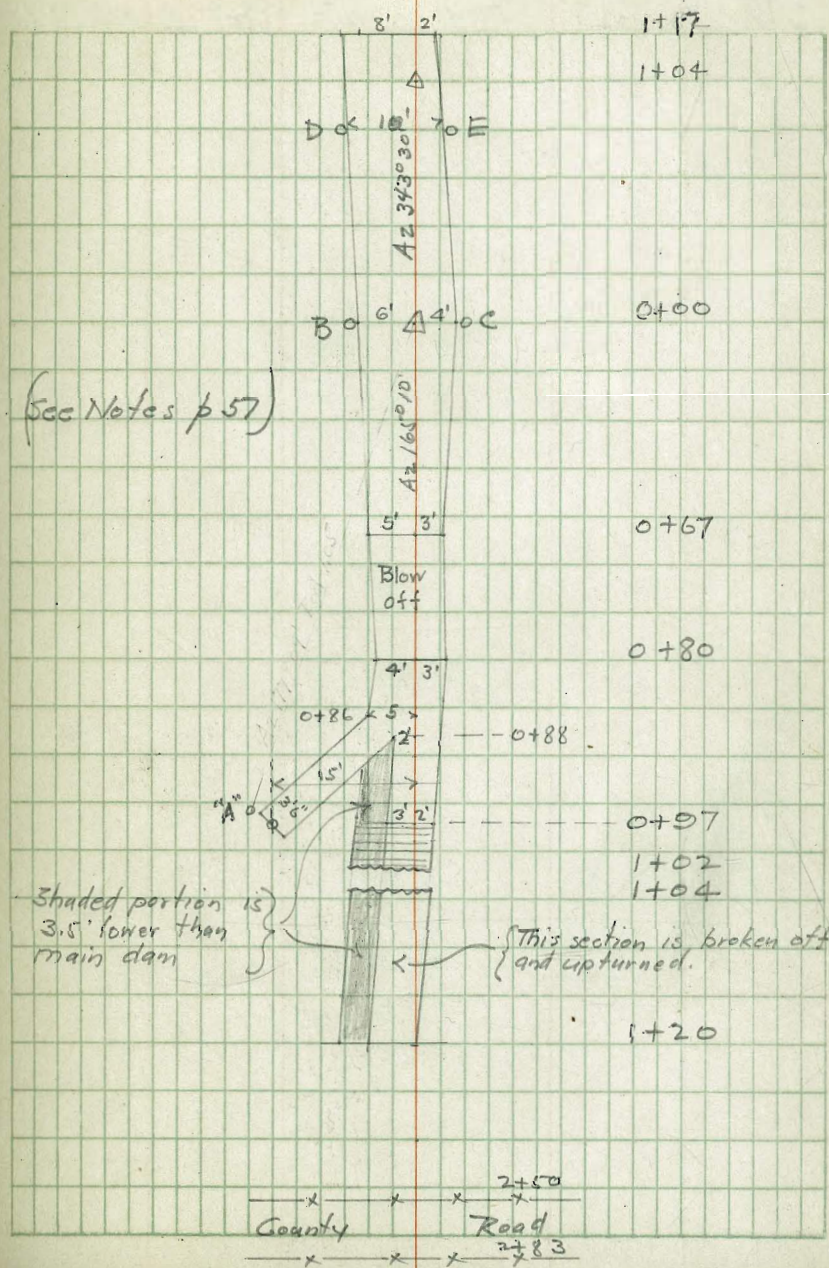 8' 2' 1+17
1+04
D 10 E
Az 343°30'
B 6' 4' C 0+00
(See Notes p 57)
Az 165°10'
5' 3' 0+67
Blow
off
0+80
4' 3'
0+86 5
2' 0+88
15'
"A" 3'6"
3' 2' 0+97
1+02
1+04
Shaded portion is
3.5' lower than
main dam
This section is broken off
and upturned.
1+20
2+50
County Road
2+83